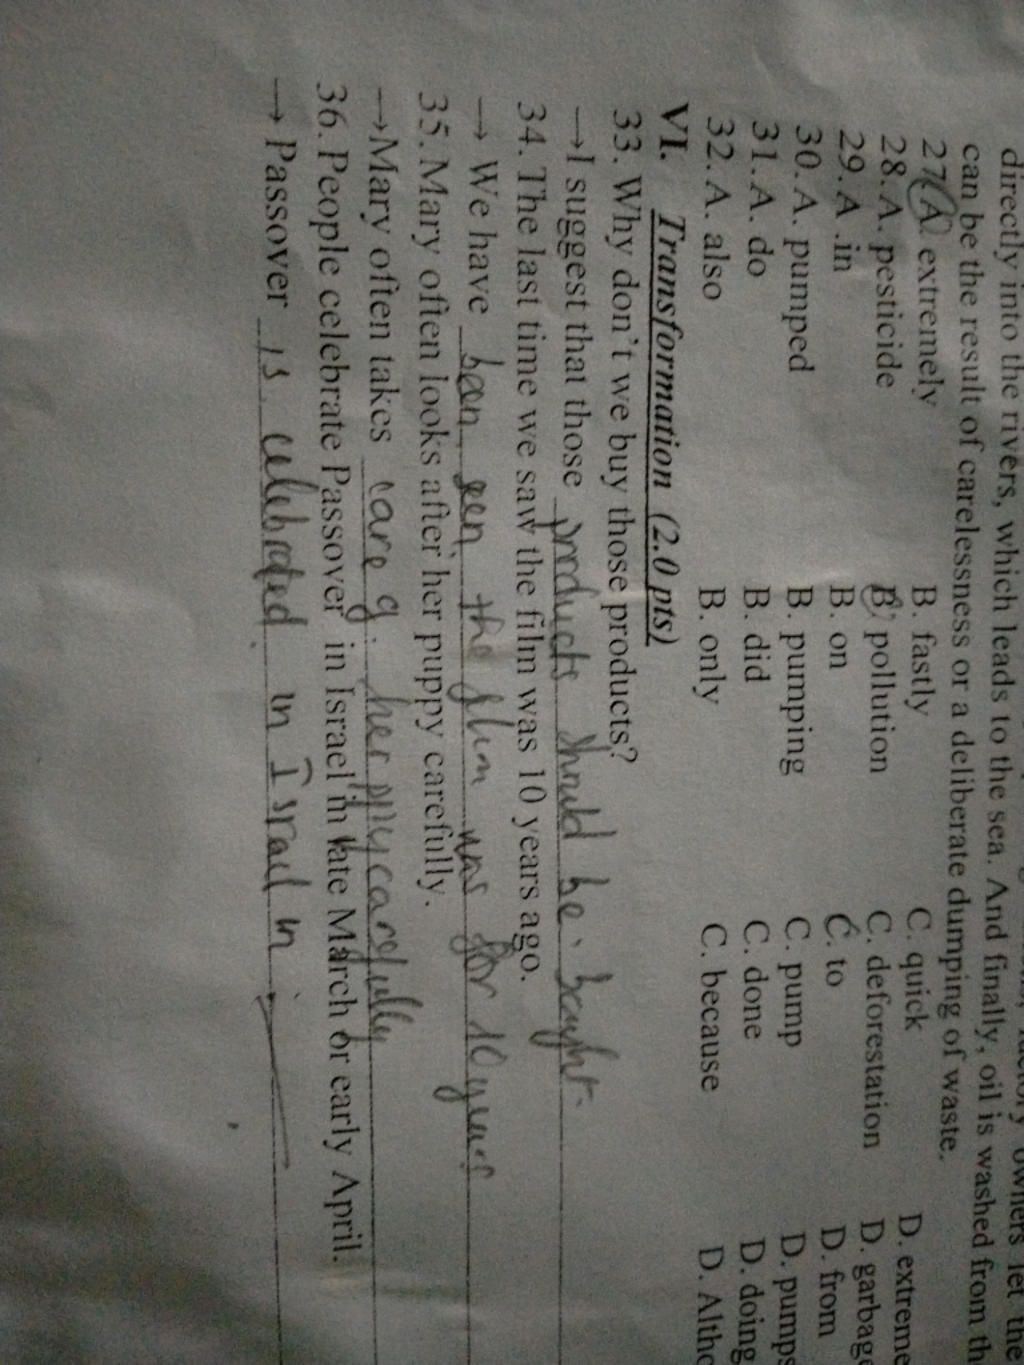 directly into the rivers, which leads to the sea. And finally, oil is washed from
can be the result of carelessness or a deliberate dumping of waste.
27. A. extremely B. fastly C. quick D. extreme
28. A. pesticide B. pollution C. deforestation D. garbage
29. A .in B. on C. to D. from
30. A. pumped B. pumping C. pump D. pumps
31. A. do B. did C. done D. doing
32. A. also B. only C. because D. Altho
VI. Transformation (2.0 pts)
33. Why don't we buy those products?
→I suggest that those products should be bought.
34. The last time we saw the film was 10 years ago.
→ We have been seen the film was for 10 years
35. Mary often looks after her puppy carefully.
→Mary often takes care of her carefully
36. People celebrate Passover in Israel in late March or early April.
→ Passover is celebrated in Israel in